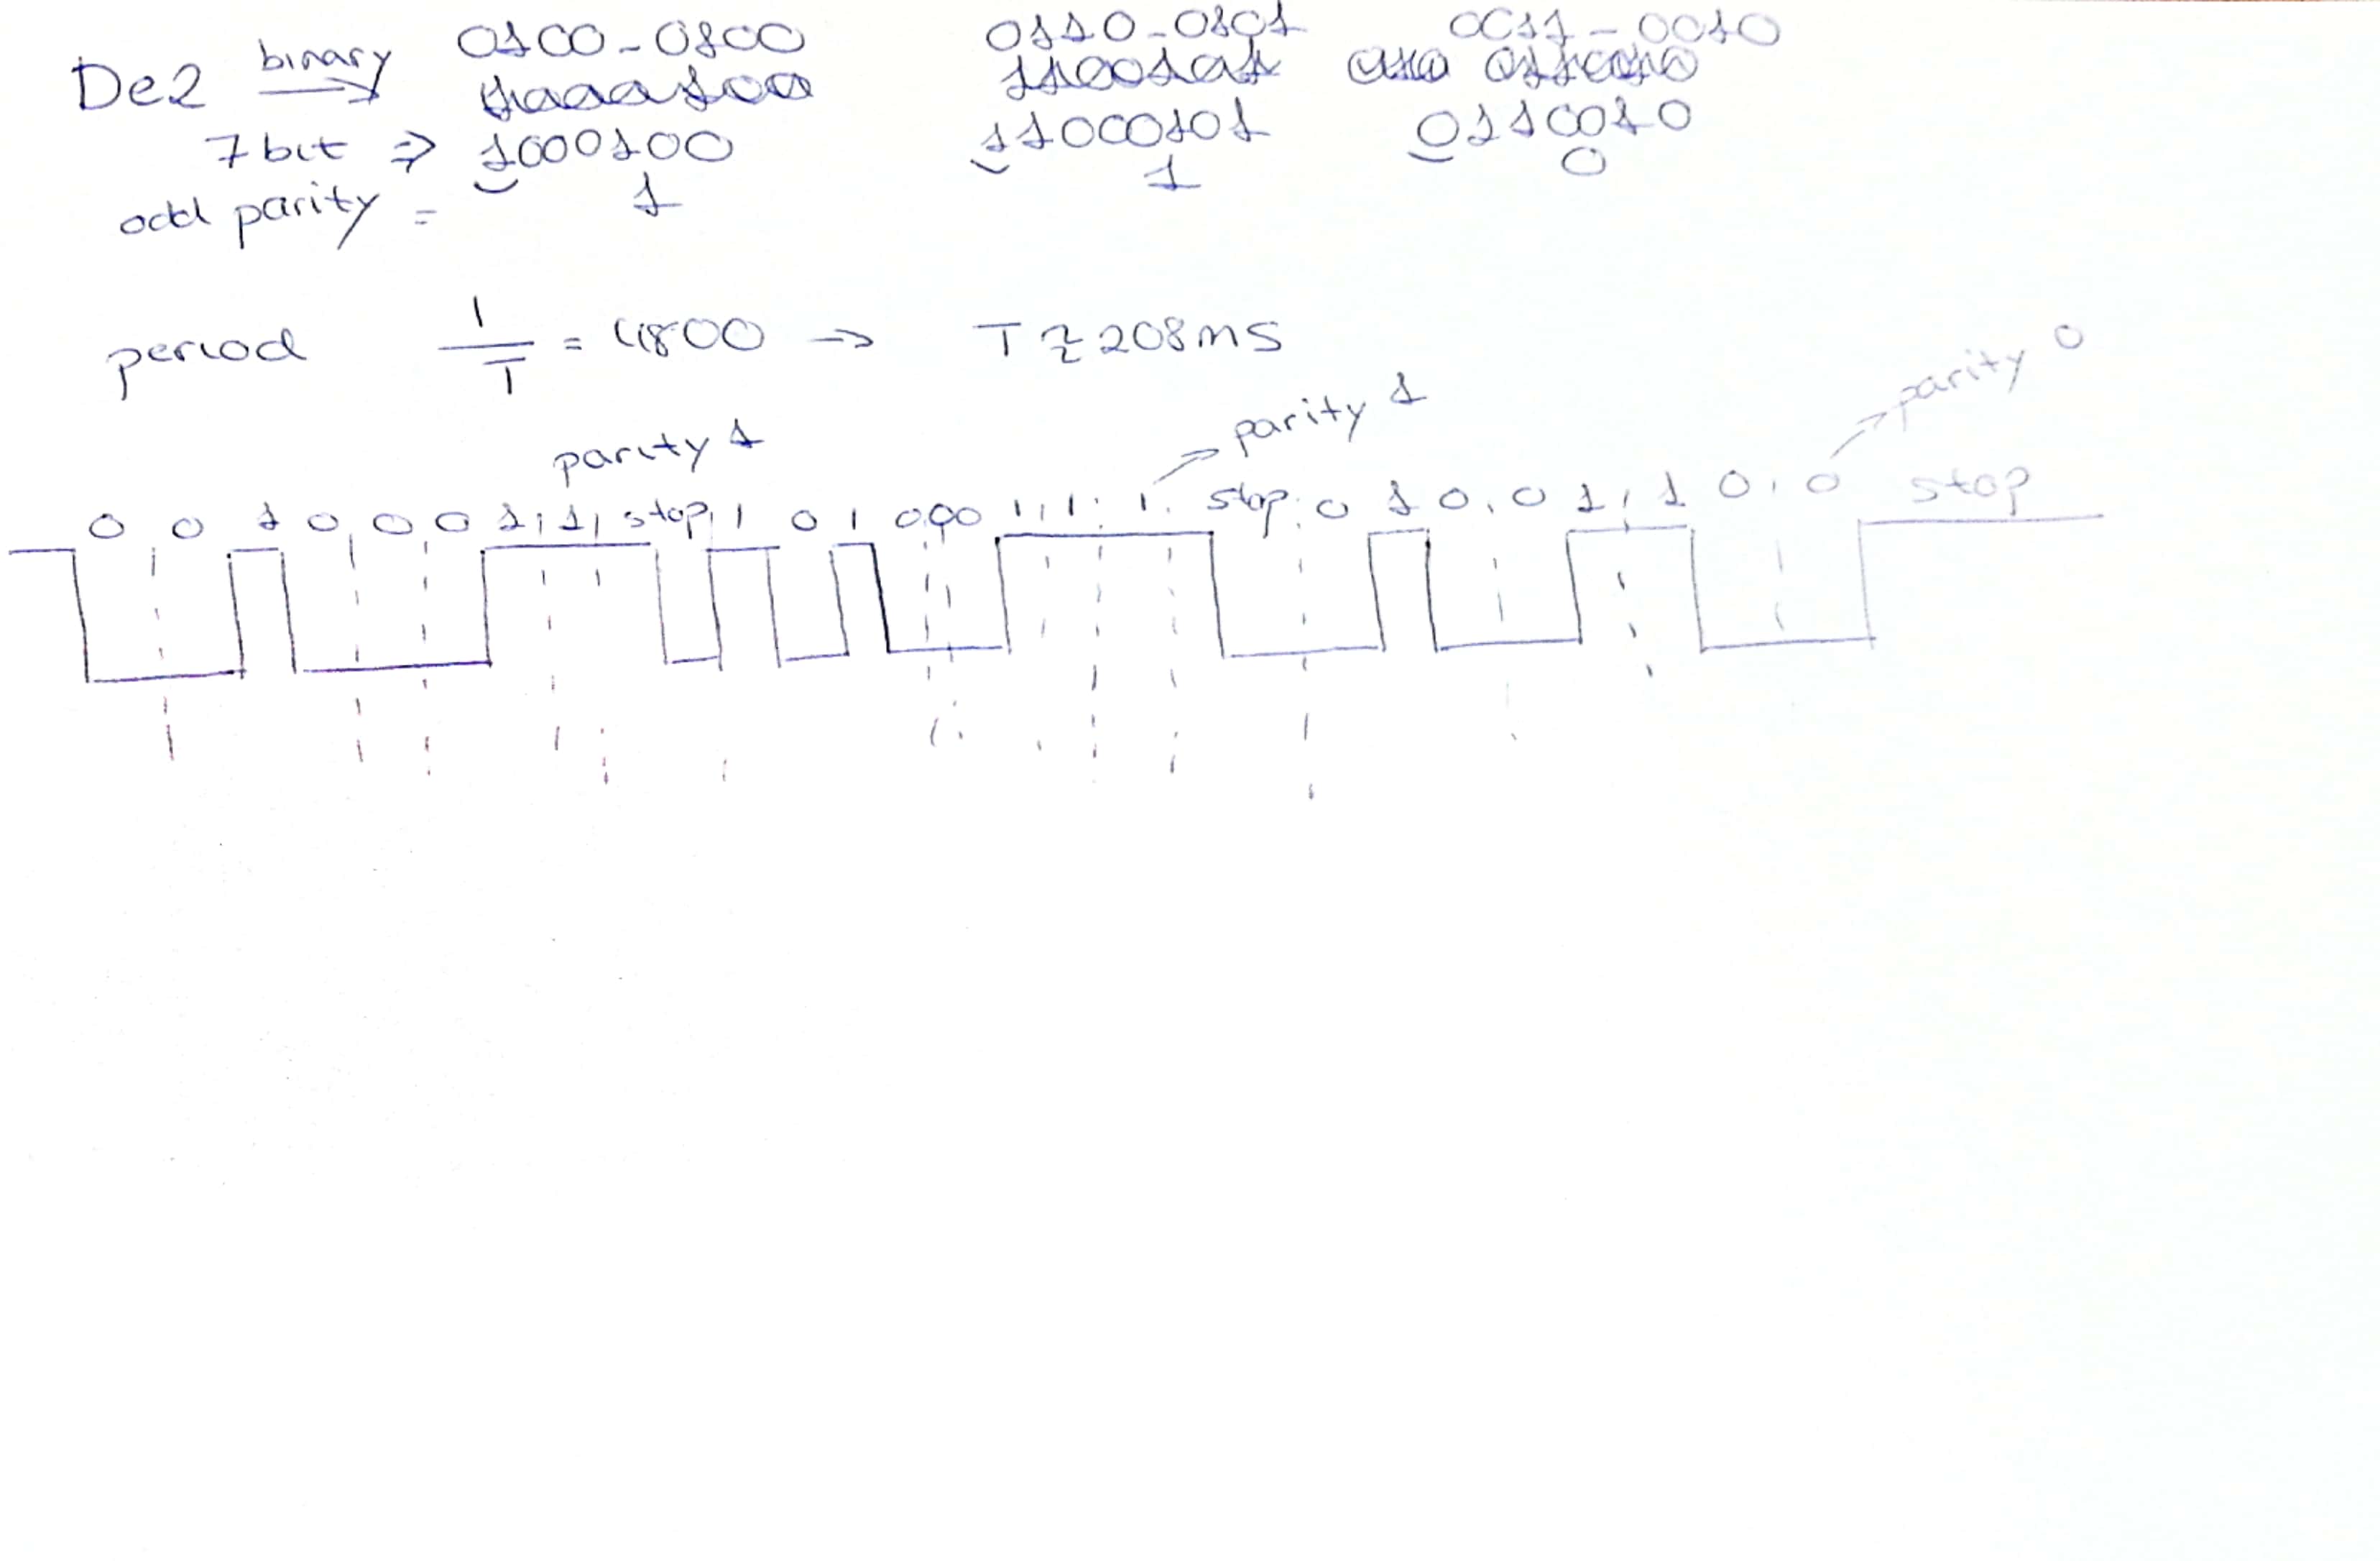 De2 binary 0100-0100 0110-0101 0011-0010
7 bit ⇒ 1000100 11000101 0110010
odd parity = 1 1 0
period 1/T = 4800 → T ≈ 208ms
parity 1 → parity 1 → parity 0
0 0 1 0 0 0 1 1 stop 1 0 1 000 1 1 1 stop 0 1 0 0 1 1 0 0 stop